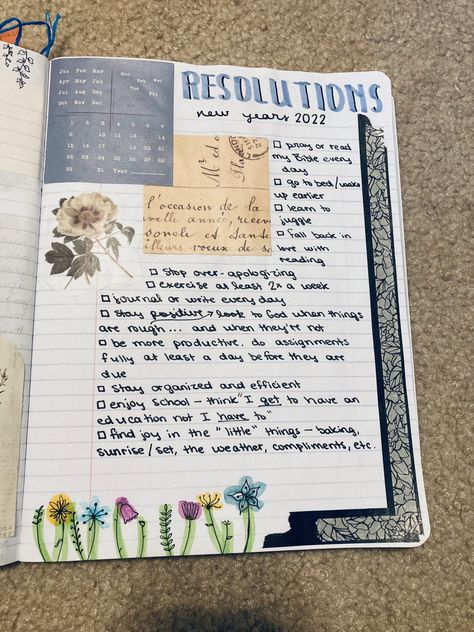 RESOLUTIONS
new years 2022
Jan Feb Mar
Apr May Jun
Jul Aug Sep
Oct Nov Dec
Mon
Tue
Fri
Year
l'occasion de la
velle année, recev
soncle et Santé
illeurs voeux de s
□ pray or read
my Bible every
day
□ go to bed/wake
up earlier
□ learn to
juggle
□ fall back in
love with
reading
□ stop over-apologizing
□ exercise as least 2x a week
□ journal or write every day
□ Stay positive → look to God when things
are rough... and when they're not
□ be more productive. do assignments
fully at least a day before they are
due
□ stay organized and efficient
□ enjoy school – think "I get to have an
education not I have to"
□ find joy in the "little" things – baking,
sunrise/set, the weather, compliments, etc.